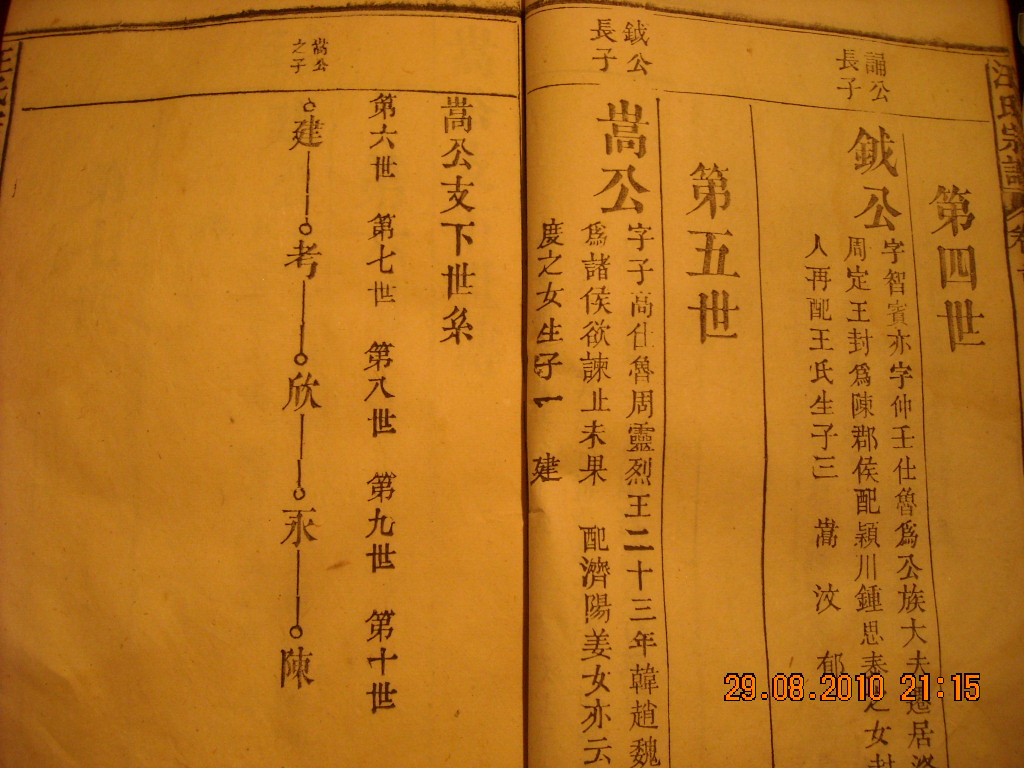 汪氏宗譜
第四世
誦公
長子
鉞公
字智賓亦字仲壬仕魯爲公族大夫遷居
周定王封爲陳郡侯配潁川鍾思泰之女封
人再配王氏生子三 嵩 汶 郁
第五世
鉞公
長子
嵩公
字子高仕魯周靈烈王二十三年韓趙魏
爲諸侯欲諫止未果 配濟陽姜女亦云
度之女生子一 建
嵩公支下世系
第六世 第七世 第八世 第九世 第十世
嵩公
之子
建 考 欣 承 陳
29.08.2010 21:15